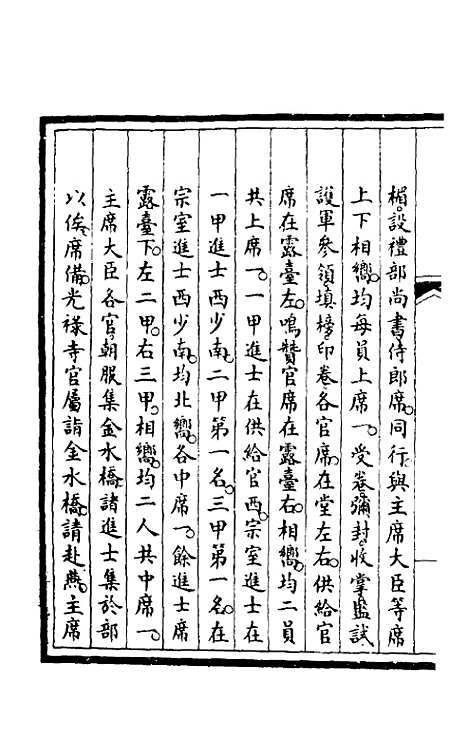 楣設禮部尚書侍郎席同行與主席大臣等席
上下相嚮均每員上席一受卷彌封收掌監試
護軍參領填榜印卷各官席在堂左右供給官
席在露臺左鳴贊官席在露臺右相嚮均二員
共上席一一甲進士在供給官西宗室進士在
一甲進士西少南二甲第一名三甲第一名在
宗室進士西少南均北嚮各中席一餘進士席
露臺下左二甲右三甲相嚮均二人共中席一
主席大臣各官朝服集金水橋諸進士集於部
以俟席備光祿寺官屬詣金水橋請赴燕主席